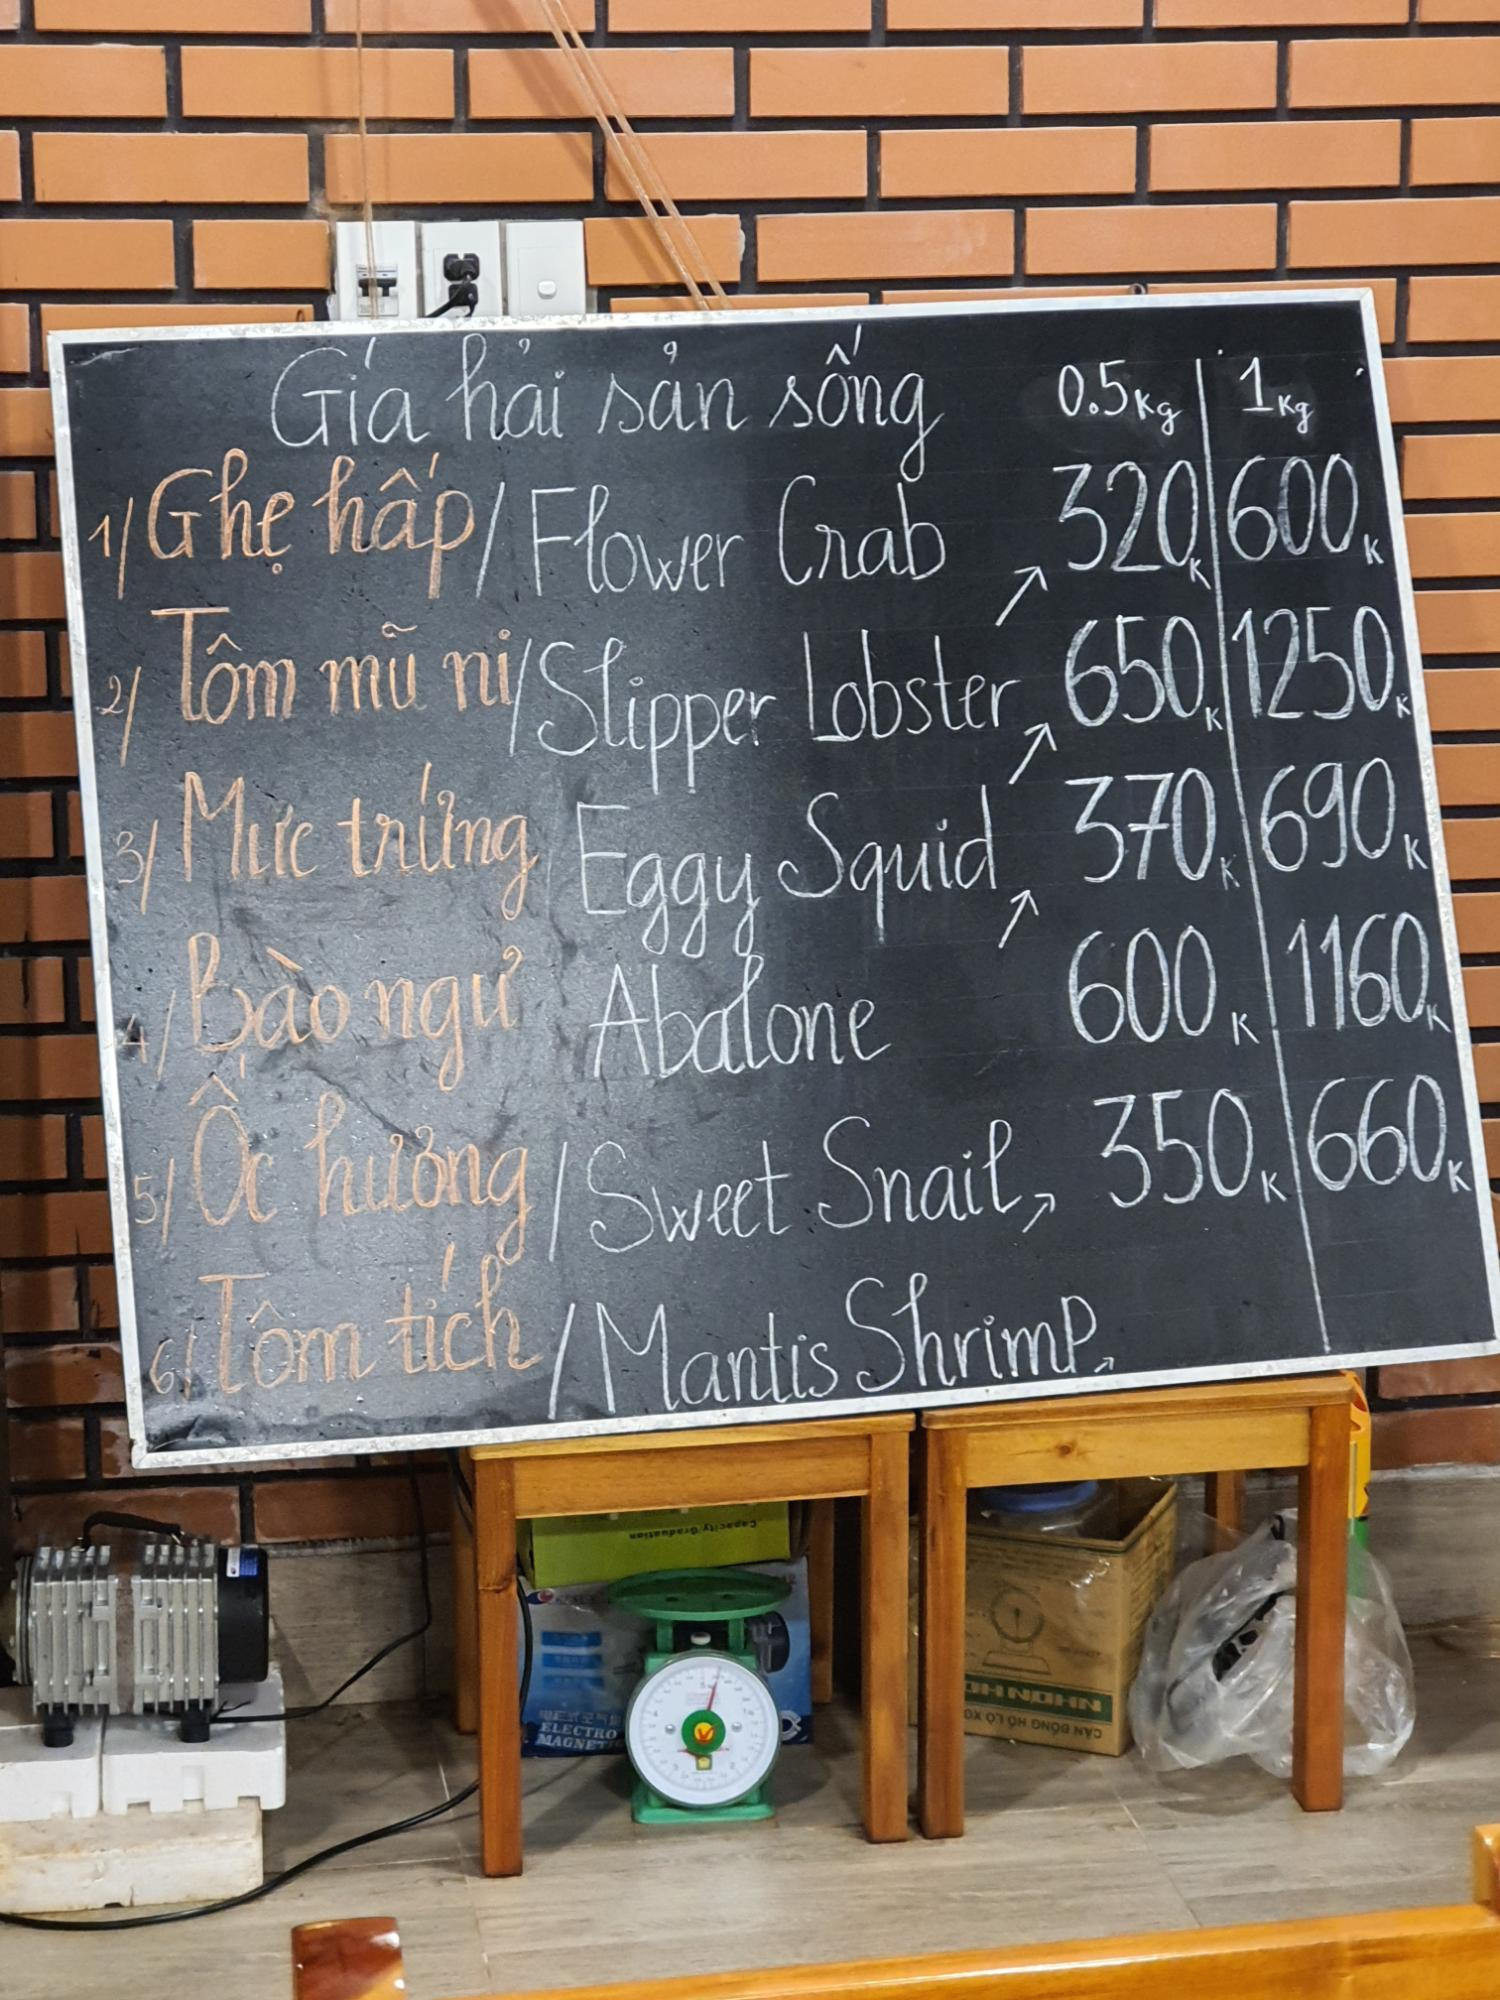 Giá hải sản sống 0.5Kg 1Kg
1/ Ghẹ hấp / Flower Crab 320K 600K
2/ Tôm mũ ni / Slipper Lobster 650K 1250K
3/ Mực trứng / Eggy Squid 370K 690K
4/ Bào ngư Abalone 600K 1160K
5/ Ốc hương / Sweet Snail 350K 660K
6/ Tôm tích / Mantis Shrimp
Capacity Graduation
ELECTRO
MAGNETIC
NHƠN HÒA
CÂN ĐỒNG HỒ LÒ XO